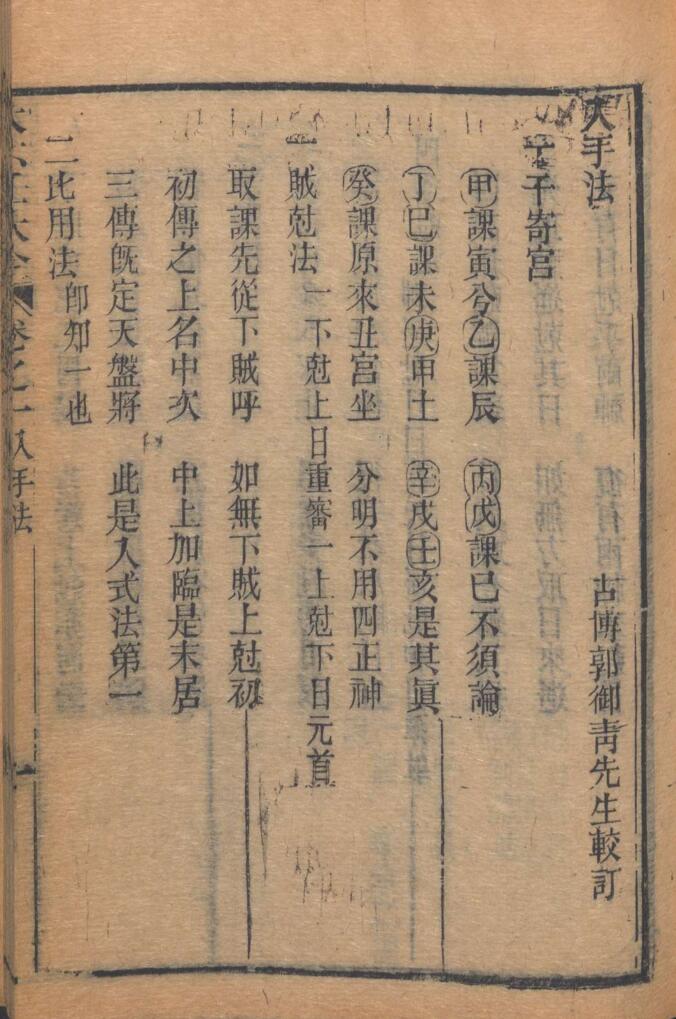 入手法
古博郭御靑先生較訂
十干寄宮
甲課寅兮乙課辰　丙戊課巳不須論
丁巳課未庚申土　辛戌壬亥是其眞
癸課原來丑宮坐　分明不用四正神
一賊尅法一下尅上曰重審一上尅下曰元首
取課先從下賊呼　如無下賊上尅初
初傳之上名中次　中上加臨是末居
三傳旣定天盤將　此是入式法第一
二比用法卽知一也
大六壬大全　卷之一入手法　一